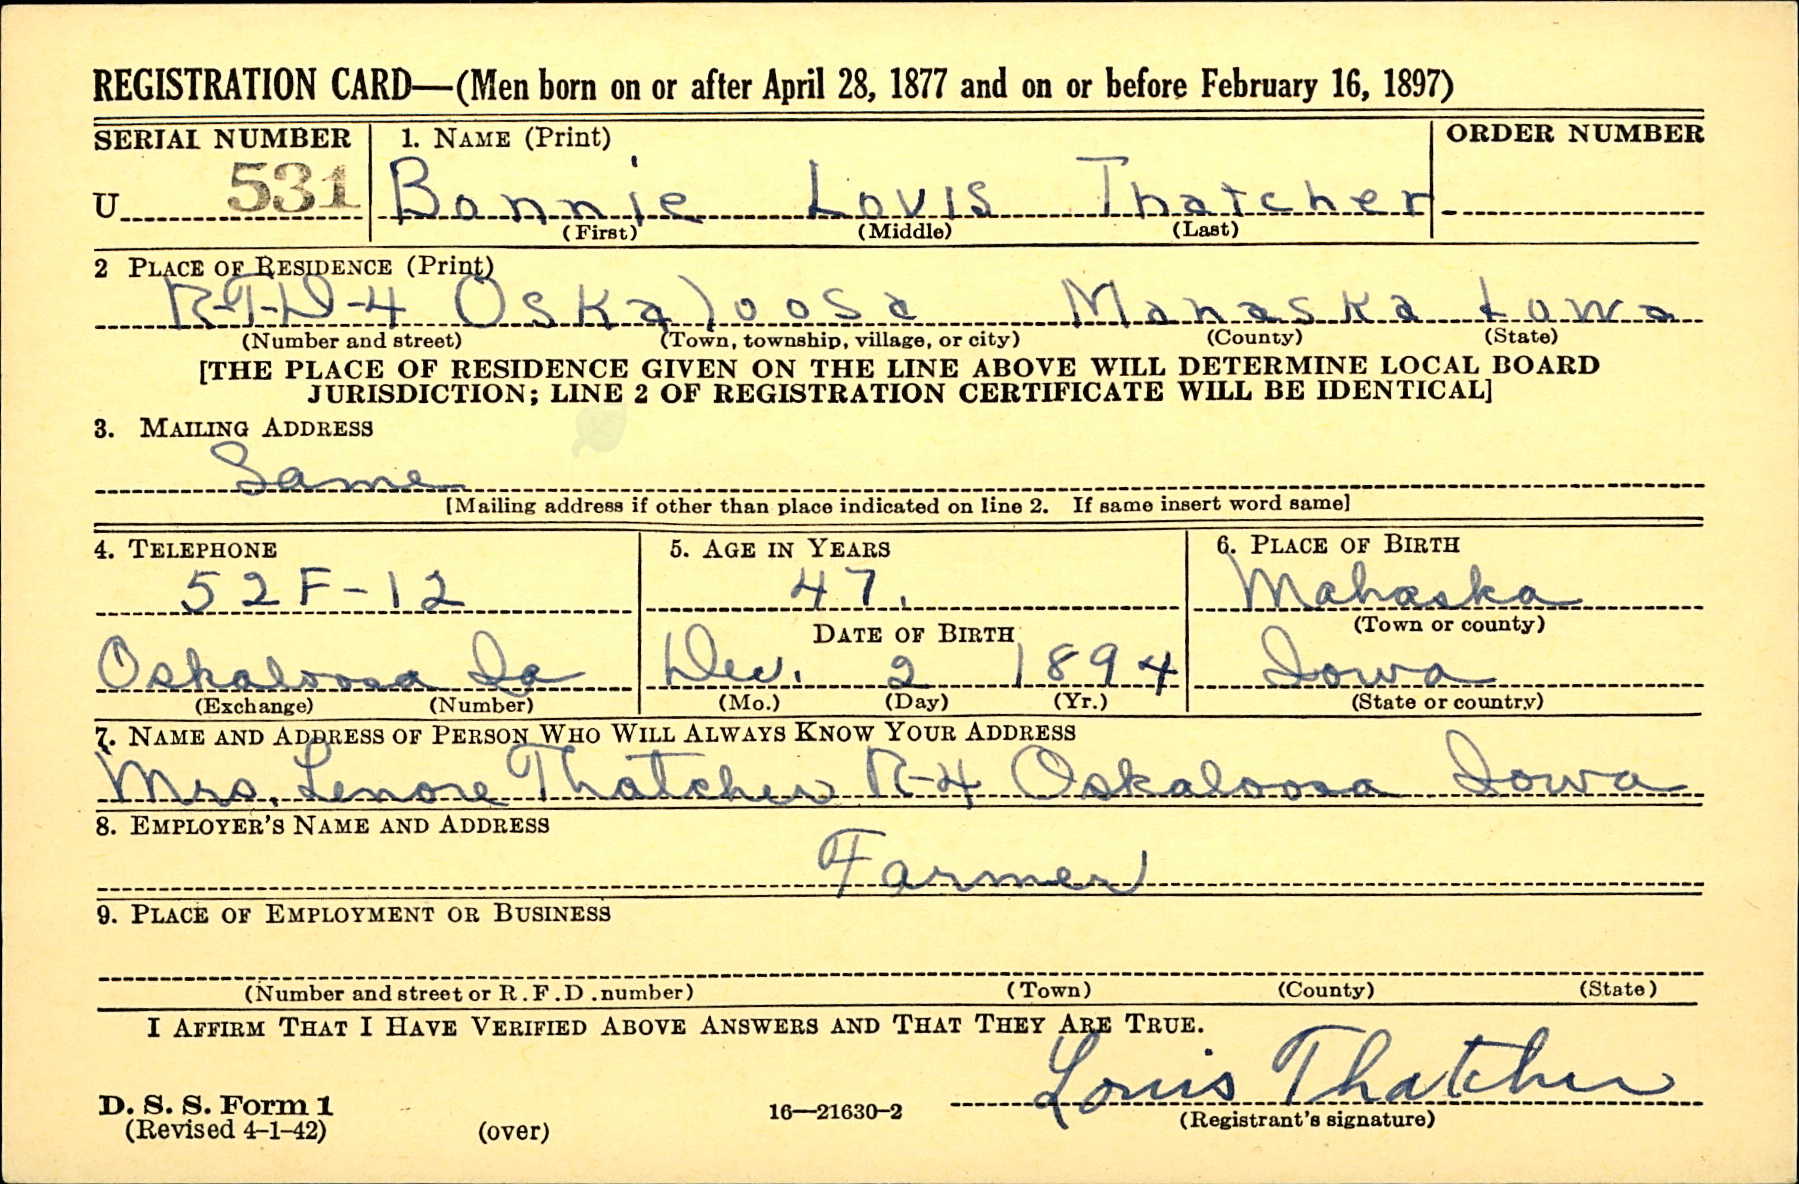 REGISTRATION CARD—(Men born on or after April 28, 1877 and on or before February 16, 1897)
SERIAL NUMBER 1. NAME (Print) ORDER NUMBER
U 531 Bonnie Louis Thatcher
(First) (Middle) (Last)
2 PLACE OF RESIDENCE (Print)
R-F-D-4 Oskaloosa Mahaska Iowa
(Number and street) (Town, township, village, or city) (County) (State)
[THE PLACE OF RESIDENCE GIVEN ON THE LINE ABOVE WILL DETERMINE LOCAL BOARD
JURISDICTION; LINE 2 OF REGISTRATION CERTIFICATE WILL BE IDENTICAL]
3. MAILING ADDRESS
Same
[Mailing address if other than place indicated on line 2. If same insert word same]
4. TELEPHONE 5. AGE IN YEARS 6. PLACE OF BIRTH
52F-12 47. Mahaska
DATE OF BIRTH (Town or county)
Oskaloosa Ia Dec. 2 1894 Iowa
(Exchange) (Number) (Mo.) (Day) (Yr.) (State or country)
7. NAME AND ADDRESS OF PERSON WHO WILL ALWAYS KNOW YOUR ADDRESS
Mrs. Lenore Thatcher R-4 Oskaloosa Iowa
8. EMPLOYER'S NAME AND ADDRESS
Farmer
9. PLACE OF EMPLOYMENT OR BUSINESS
(Number and street or R.F.D. number) (Town) (County) (State)
I AFFIRM THAT I HAVE VERIFIED ABOVE ANSWERS AND THAT THEY ARE TRUE.
Louis Thatcher
D. S. S. Form 1
(Revised 4-1-42) (over) 16—21630-2 (Registrant's signature)